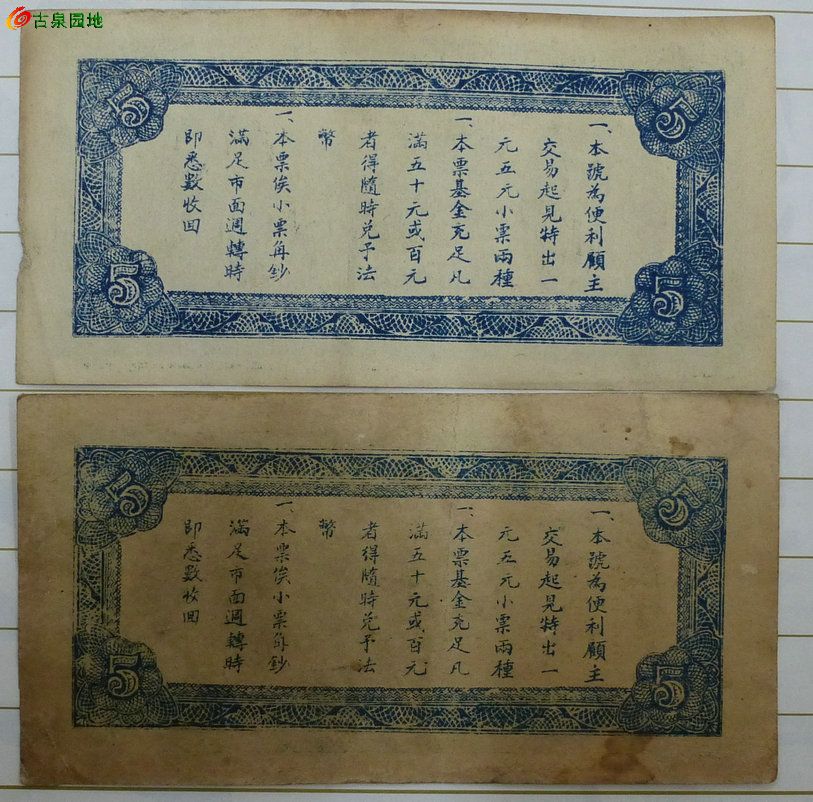 古泉园地
5
5
一、本號為便利顧主
交易起見特出一
元五元小票兩種
一、本票基金充足凡
滿五十元或百元
者得隨時兑予法
幣
一、本票俟小票角鈔
滿足市面週轉時
即悉數收回
5
5
5
5
一、本號為便利顧主
交易起見特出一
元五元小票兩種
一、本票基金充足凡
滿五十元或百元
者得隨時兑予法
幣
一、本票俟小票角鈔
滿足市面週轉時
即悉數收回
5
5